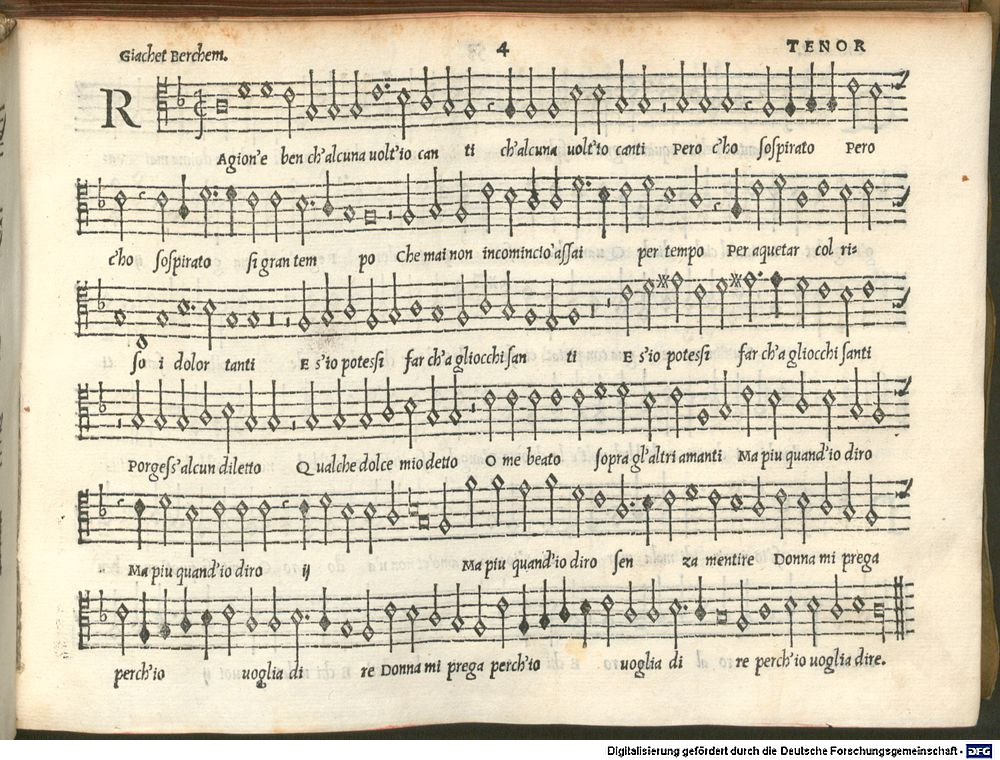 Giachet Berchem. 4 TENOR
R
Agion'e ben ch'alcuna uolt'io can ti ch'alcuna uolt'io canti Pero c'ho sospirato Pero
c'ho sospirato si gran tem po Che mai non incomincio'assai per tempo Per aquetar col ria
so i dolor tanti E s'io potessi far ch'a gliocchi san ti E s'io potessi far ch'a gliocchi santi
Porgess'alcun diletto Qualche dolce mio detto O me beato sopra gl'altri amanti Ma piu quand'io diro
Ma piu quand'io diro ij Ma piu quand'io diro sen za mentire Donna mi prega
perch'io uoglia di re Donna mi prega perch'io uoglia di re perch'io uoglia dire.
Digitalisierung gefördert durch die Deutsche Forschungsgemeinschaft - DFG